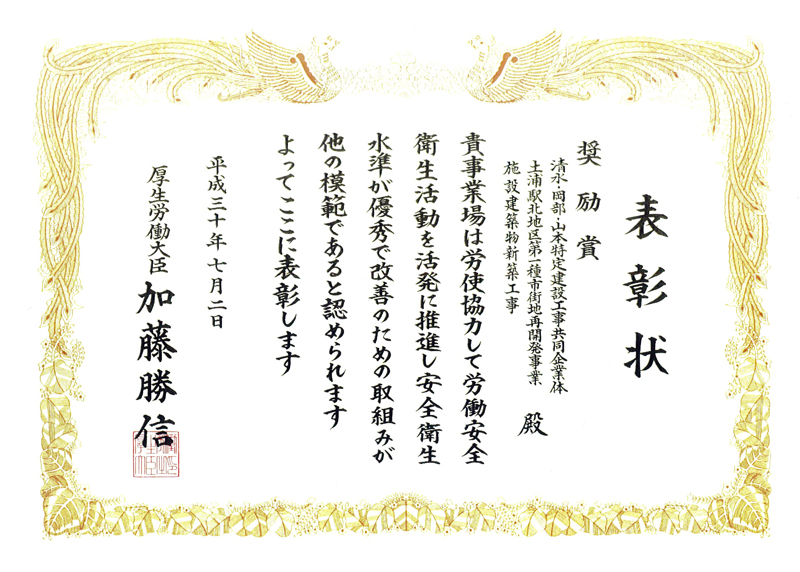 表彰状
奨励賞
清水・岡部・山本特定建設工事共同企業体
土浦駅北地区第一種市街地再開発事業
施設建築物新築工事
殿
貴事業場は労使協力して労働安全
衛生活動を活発に推進し安全衛生
水準が優秀で改善のための取組みが
他の模範であると認められます
よってここに表彰します
平成三十年七月二日
厚生労働大臣
加藤勝信